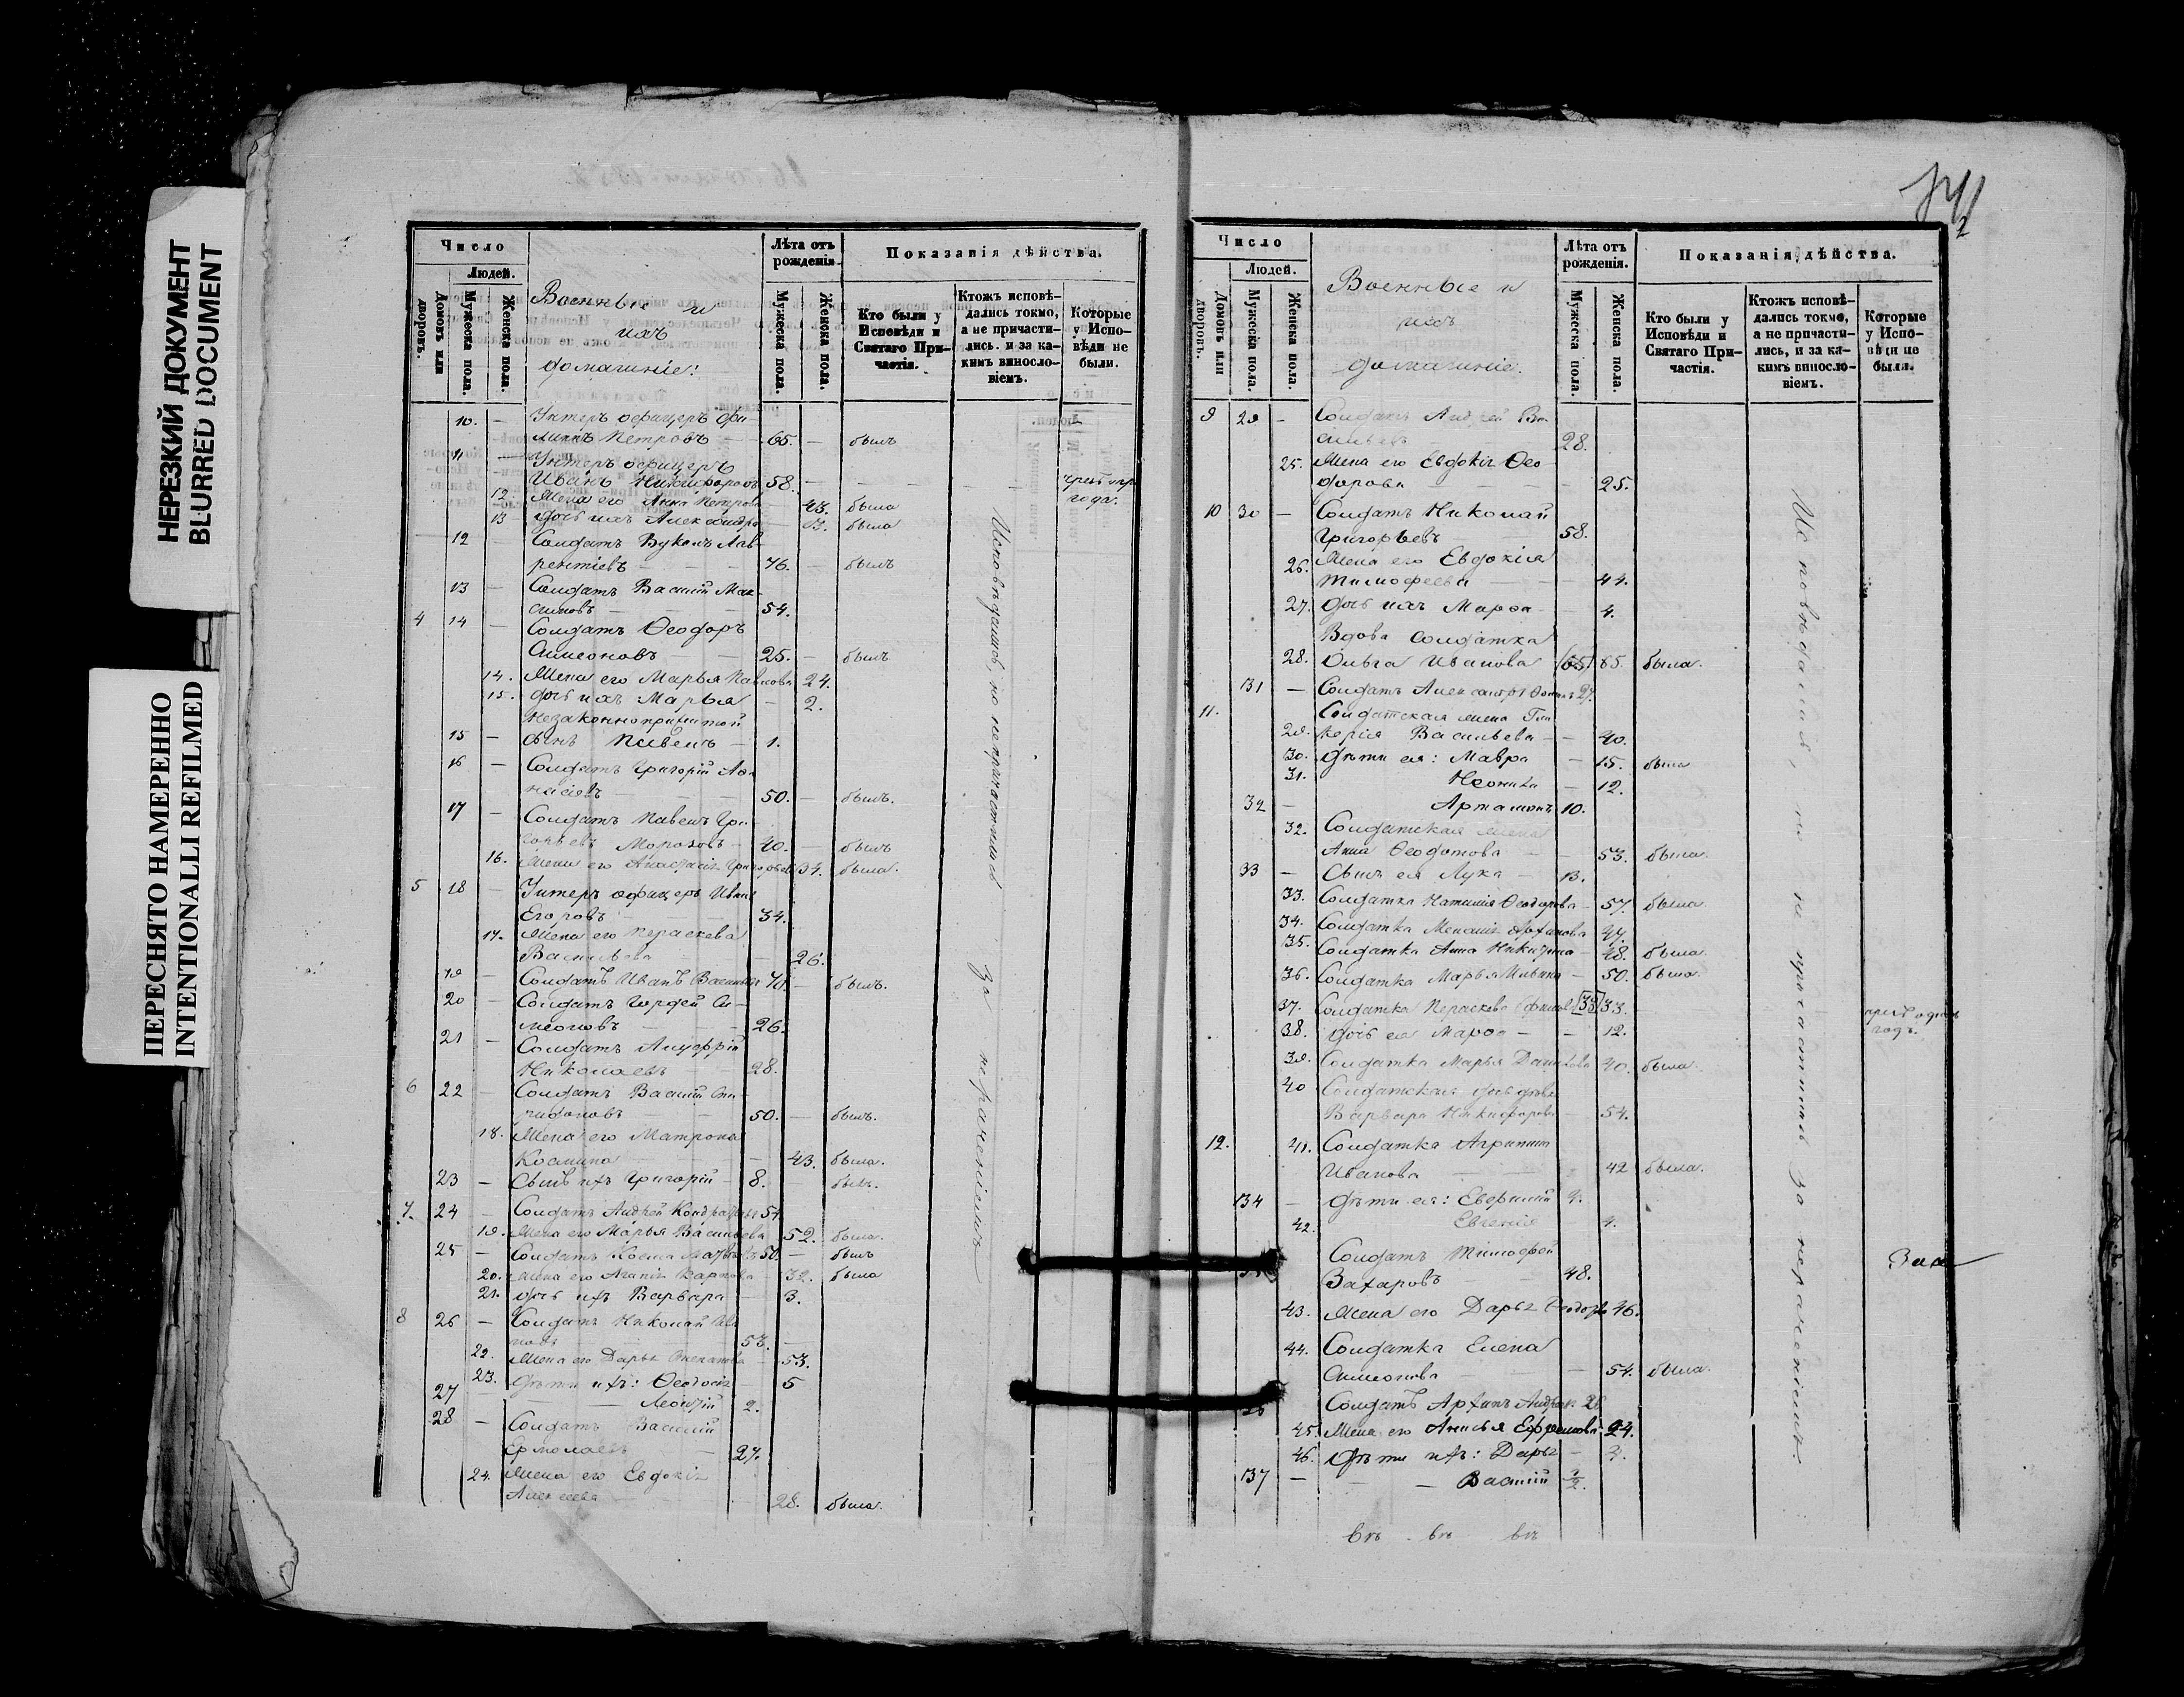 НЕРЕЗКИЙ ДОКУМЕНТ
BLURRED DOCUMENT
ПЕРЕСНЯТО НАМЕРЕННО
INTENTIONALLI REFILMED
Число
Людей.
Домовъ или дворовъ.
Мужеска пола.
Женска пола.
Военные и
ихъ
домашніе:
Лѣта отъ рожденія.
Мужеска пола.
Женска пола.
Показанія дѣйства.
Кто были у Исповѣди и Святаго Причастія.
Ктожъ исповѣдались токмо, а не причастились. и за какимъ винословіемъ.
Которые у Исповѣди не были.
10. — Унтеръ офицеръ Фи-
липъ Петровъ — 65. — былъ
11 — Унтеръ офицеръ
Иванъ Никифоровъ 58. —
года.
12. Жена его Анна Петрова 43. была
13 дочь ихъ Александра 13. была
12 — Солдатъ Вуколъ Лав-
рентіевъ — 76. — былъ
13 — Солдатъ Василій Мак-
симовъ — 54.
4 14 — Солдатъ Ѳеодоръ
Симеоновъ — 25. — былъ
14. Жена его Марья Павлова 24.
15. дочь ихъ Марья — 2.
незаконноприжитой
15 — сынъ Павелъ — 1.
16 — Солдатъ Григорій Аѳа-
насіевъ — 50. — былъ.
17 — Солдатъ Павелъ Гри-
горьевъ Морозовъ — 40. — былъ
16. Жена его Анастасія Григорьева 34. была.
5 18 — Унтеръ офицеръ Иванъ
Егоровъ — 34.
17. Жена его Пераскева
Васильева 26.
19 — Солдатъ Иванъ Васильевъ — былъ.
20 — Солдатъ Гордей Си-
меоновъ — 26.
21 — Солдатъ
Николаевъ — 28.
6 22 — Солдатъ Василій Спи-
ридоновъ — 50. — былъ.
18. Жена его Матрона
Космина — 43. была.
23 — Сынъ ихъ Григорій — 8. — былъ.
7. 24 — Солдатъ Андрей Кондратьевъ 54.
19. Жена его Марья Васильева 52. была.
25 — Солдатъ Косма 50. — былъ
20. Жена его Агапія Карпова — 32. была
21. дочь ихъ Варвара — 3.
8 26 — Солдатъ Николай Ива-
новъ — 53. —
22. Жена его Дарья Степанова — 53.
23. дѣти ихъ: Ѳеодосія — 5
27 — Леонтій 2.
28 — Солдатъ Василій
Ермолаевъ — 27.
24. Жена его Евдокія
Алексеева — 28. была.
Исповѣдались, но не причастились за нераченіемъ
Число
Людей.
Домовъ или дворовъ.
Мужеска пола.
Женска пола.
Военные и
ихъ
домашніе.
Лѣта отъ рожденія.
Мужеска пола.
Женска пола.
Показанія дѣйства.
Кто были у Исповѣди и Святаго Причастія.
Ктожъ исповѣдались токмо, а не причастились, и за какимъ винословіемъ.
Которые у Исповѣди не были.
9 29 — Солдатъ Андрей Ва-
сильевъ 28.
25. Жена его Евдокія Ѳео-
дорова — 25.
10 30 — Солдатъ Николай
Григорьевъ — 58.
26. Жена его Евдокія
Тимофеева — 44.
27. дочь ихъ Марѳа — 4.
Вдова солдатка
28. Ольга Иванова (65) 65. была.
31 — Солдатъ Александръ 27.
11. Солдатская жена Гли-
29. керія Васильева — 40.
30. дѣти ея: Мавра — 15. была
31. Неонила — 12.
32 — Артамонъ 10.
32. Солдатская жена
Анна Ѳеодотова — 53. была.
33 — Сынъ ея Лука — 13.
33. Солдатка Наталія Ѳеодорова — 57. была.
34. Солдатка Меланія Архипова 47.
35. Солдатка Анна Никитина — 48. была.
36. Солдатка Марья — 50. была.
37. Солдатка Пераскева [33] 33. —
годъ.
38. дочь ея Марѳа — 12.
39. Солдатка Марья 40. была.
40 Солдатская
Варвара Никифорова — 54.
12. 41. Солдатка Агрипина
Иванова — 42 была.
34 — дѣти ея:
42. Евгенія
Солдатъ Тимофей
Захаровъ — 48.
43. Жена его Дарья Ѳеодорова 46.
44. Солдатка Елена
Симеонова — 54. была.
Солдатъ Архипъ
45. Жена его Анисья Ефремова 24.
46. дѣти ихъ: Дарья —
37 — Василій
Исповѣдались, но не причастились за нераченіемъ